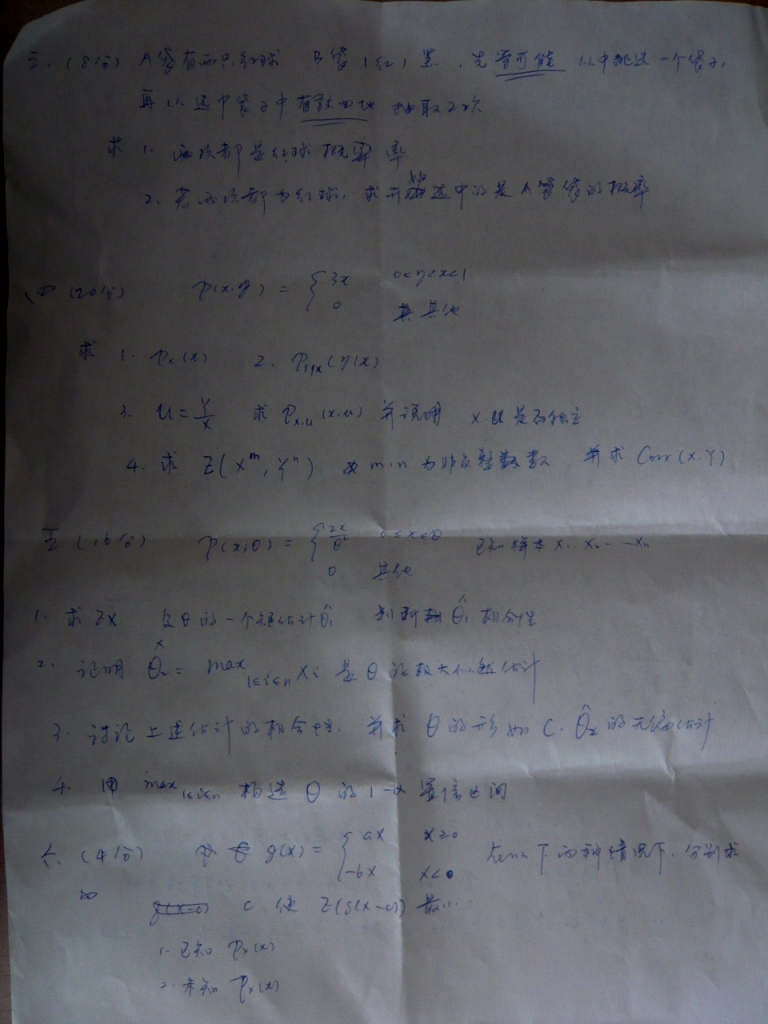 三. (8分) A袋有两只红球 B袋1红1黑, 先等可能 从中挑选一个袋子,
再从选中袋子中有放回地 抽取2次
求 1. 两次都是红球概率
2. 若两次都为红球, 求 选中的是A袋的概率
四 (20分) p(x.y) = { 3x 0<y<x<1
0 其他
求 1. Px(x) 2. PY|X(y|x)
3. U = Y/X 求 Px.u(x.u) 并说明 x.u 是否独立
4. 求 E(X^m, Y^n) m.n 为非负整数 并求 Corr(X.Y)
五 (16分) p(x;θ) = { 2x/θ² 0≤x≤θ 已知样本 X1. X2. ... Xn
0 其他
1. 求 EX 及θ的一个矩估计θ̂1 判断 θ̂1 相合性
2. 证明 θ̂2 = max 1≤i≤n Xi 是 θ 的极大似然估计
3. 讨论上述估计的相合性, 并求 θ 的形如 C.θ̂2 的无偏估计
4. 用 max 1≤i≤n 构造 θ 的 1-α 置信区间
六. (4分) g(x) = { ax x≥0 下两种情况下, 分别求
-bx x<0
C 使 E(g(x-c)) 最小
1. 已知 Px(x)
2. 未知 Px(x)